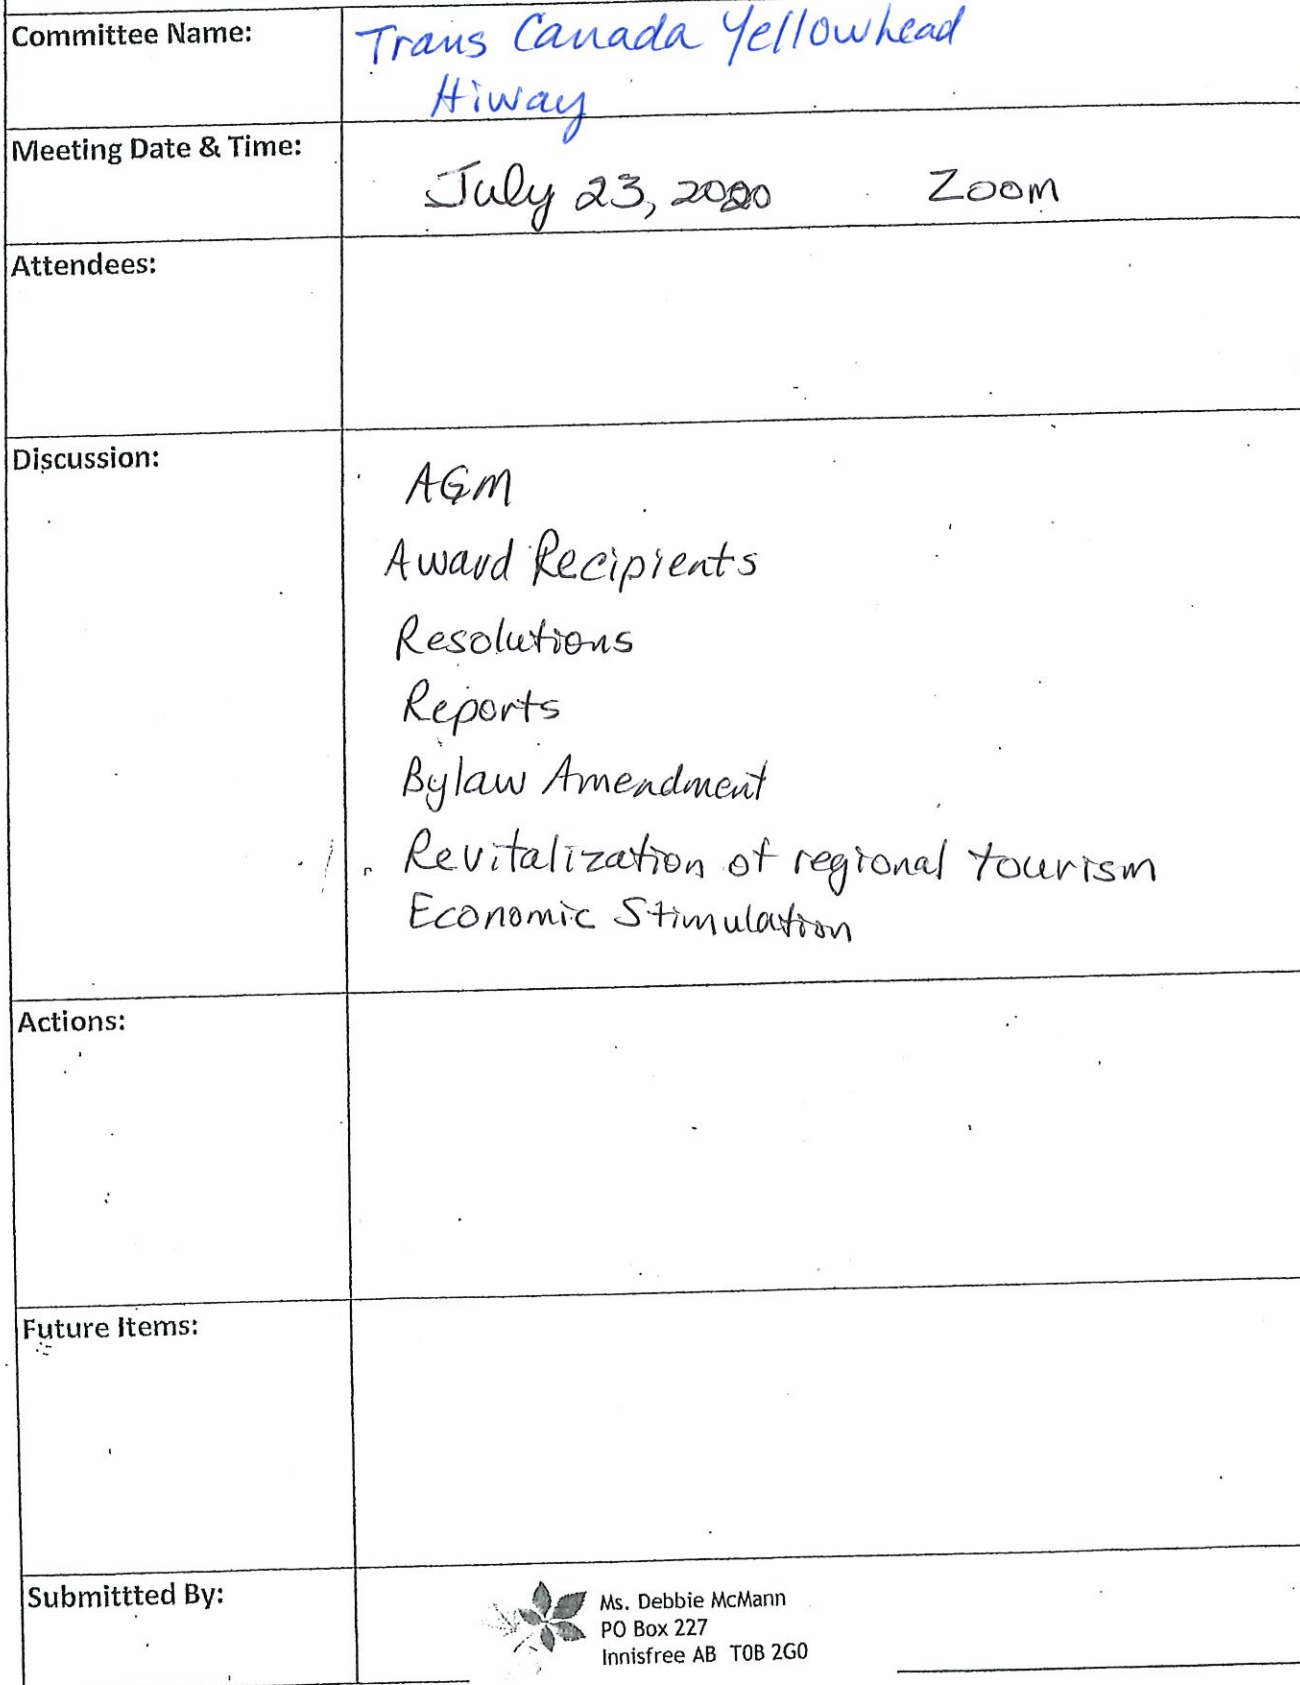 Committee Name:
Trans Canada Yellowhead
Hiway
Meeting Date & Time:
July 23, 2020 Zoom
Attendees:
Discussion:
AGM
Award Recipients
Resolutions
Reports
Bylaw Amendment
Revitalization of regional tourism
Economic Stimulation
Actions:
Future Items:
Submittted By:
Ms. Debbie McMann
PO Box 227
Innisfree AB T0B 2G0